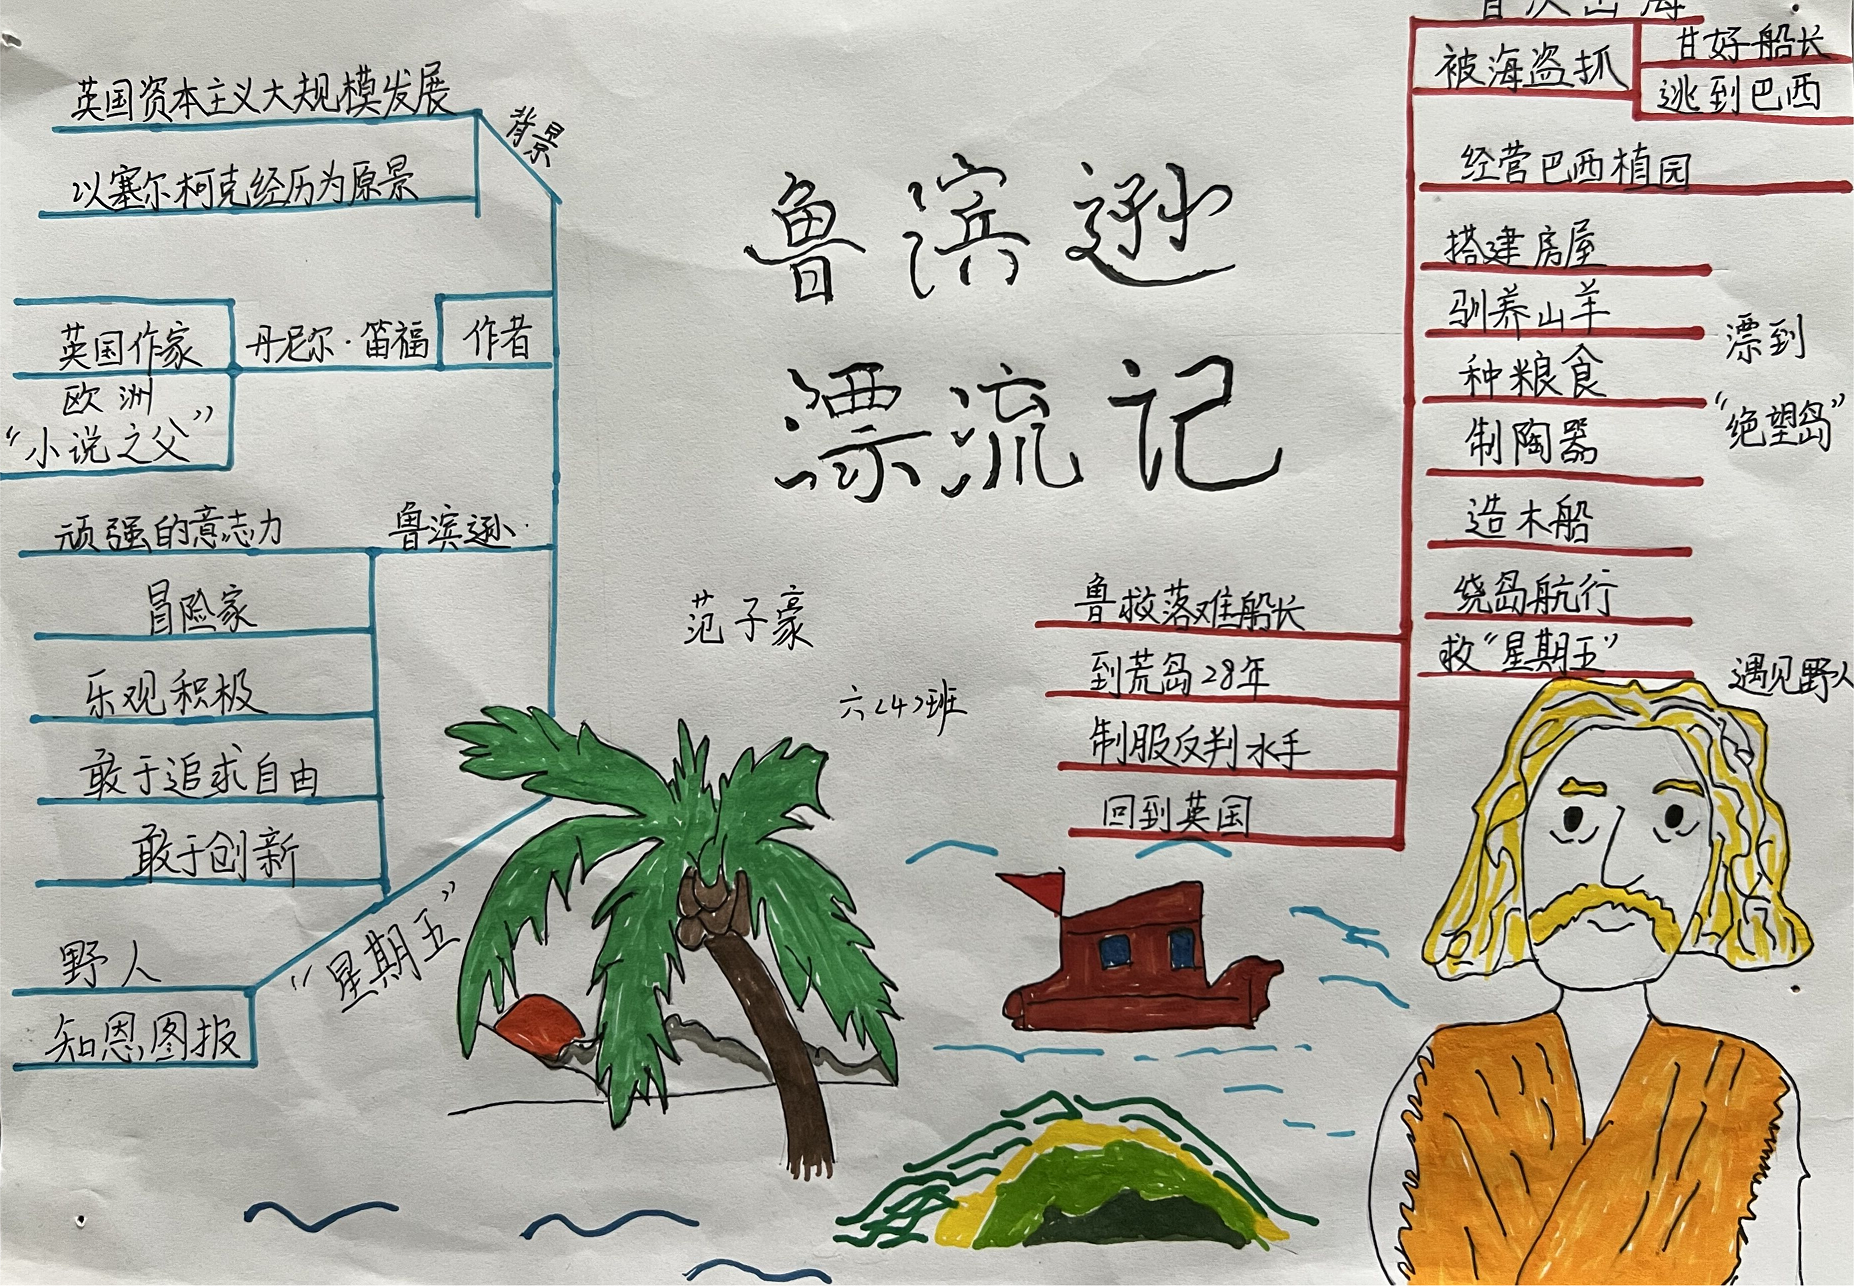 鲁滨逊
漂流记
范子豪
六(4)班
背景
英国资本主义大规模发展
以塞尔柯克经历为原景
作者
丹尼尔·笛福
英国作家
欧洲
“小说之父”
鲁滨逊
顽强的意志力
冒险家
乐观积极
敢于追求自由
敢于创新
“星期五”
野人
知恩图报
首次出海
被海盗抓
甘好船长
逃到巴西
经营巴西植园
搭建房屋
驯养山羊
种粮食
制陶器
造木船
绕岛航行
救“星期五”
漂到
“绝望岛”
遇见野人
鲁救落难船长
到荒岛28年
制服反判水手
回到英国